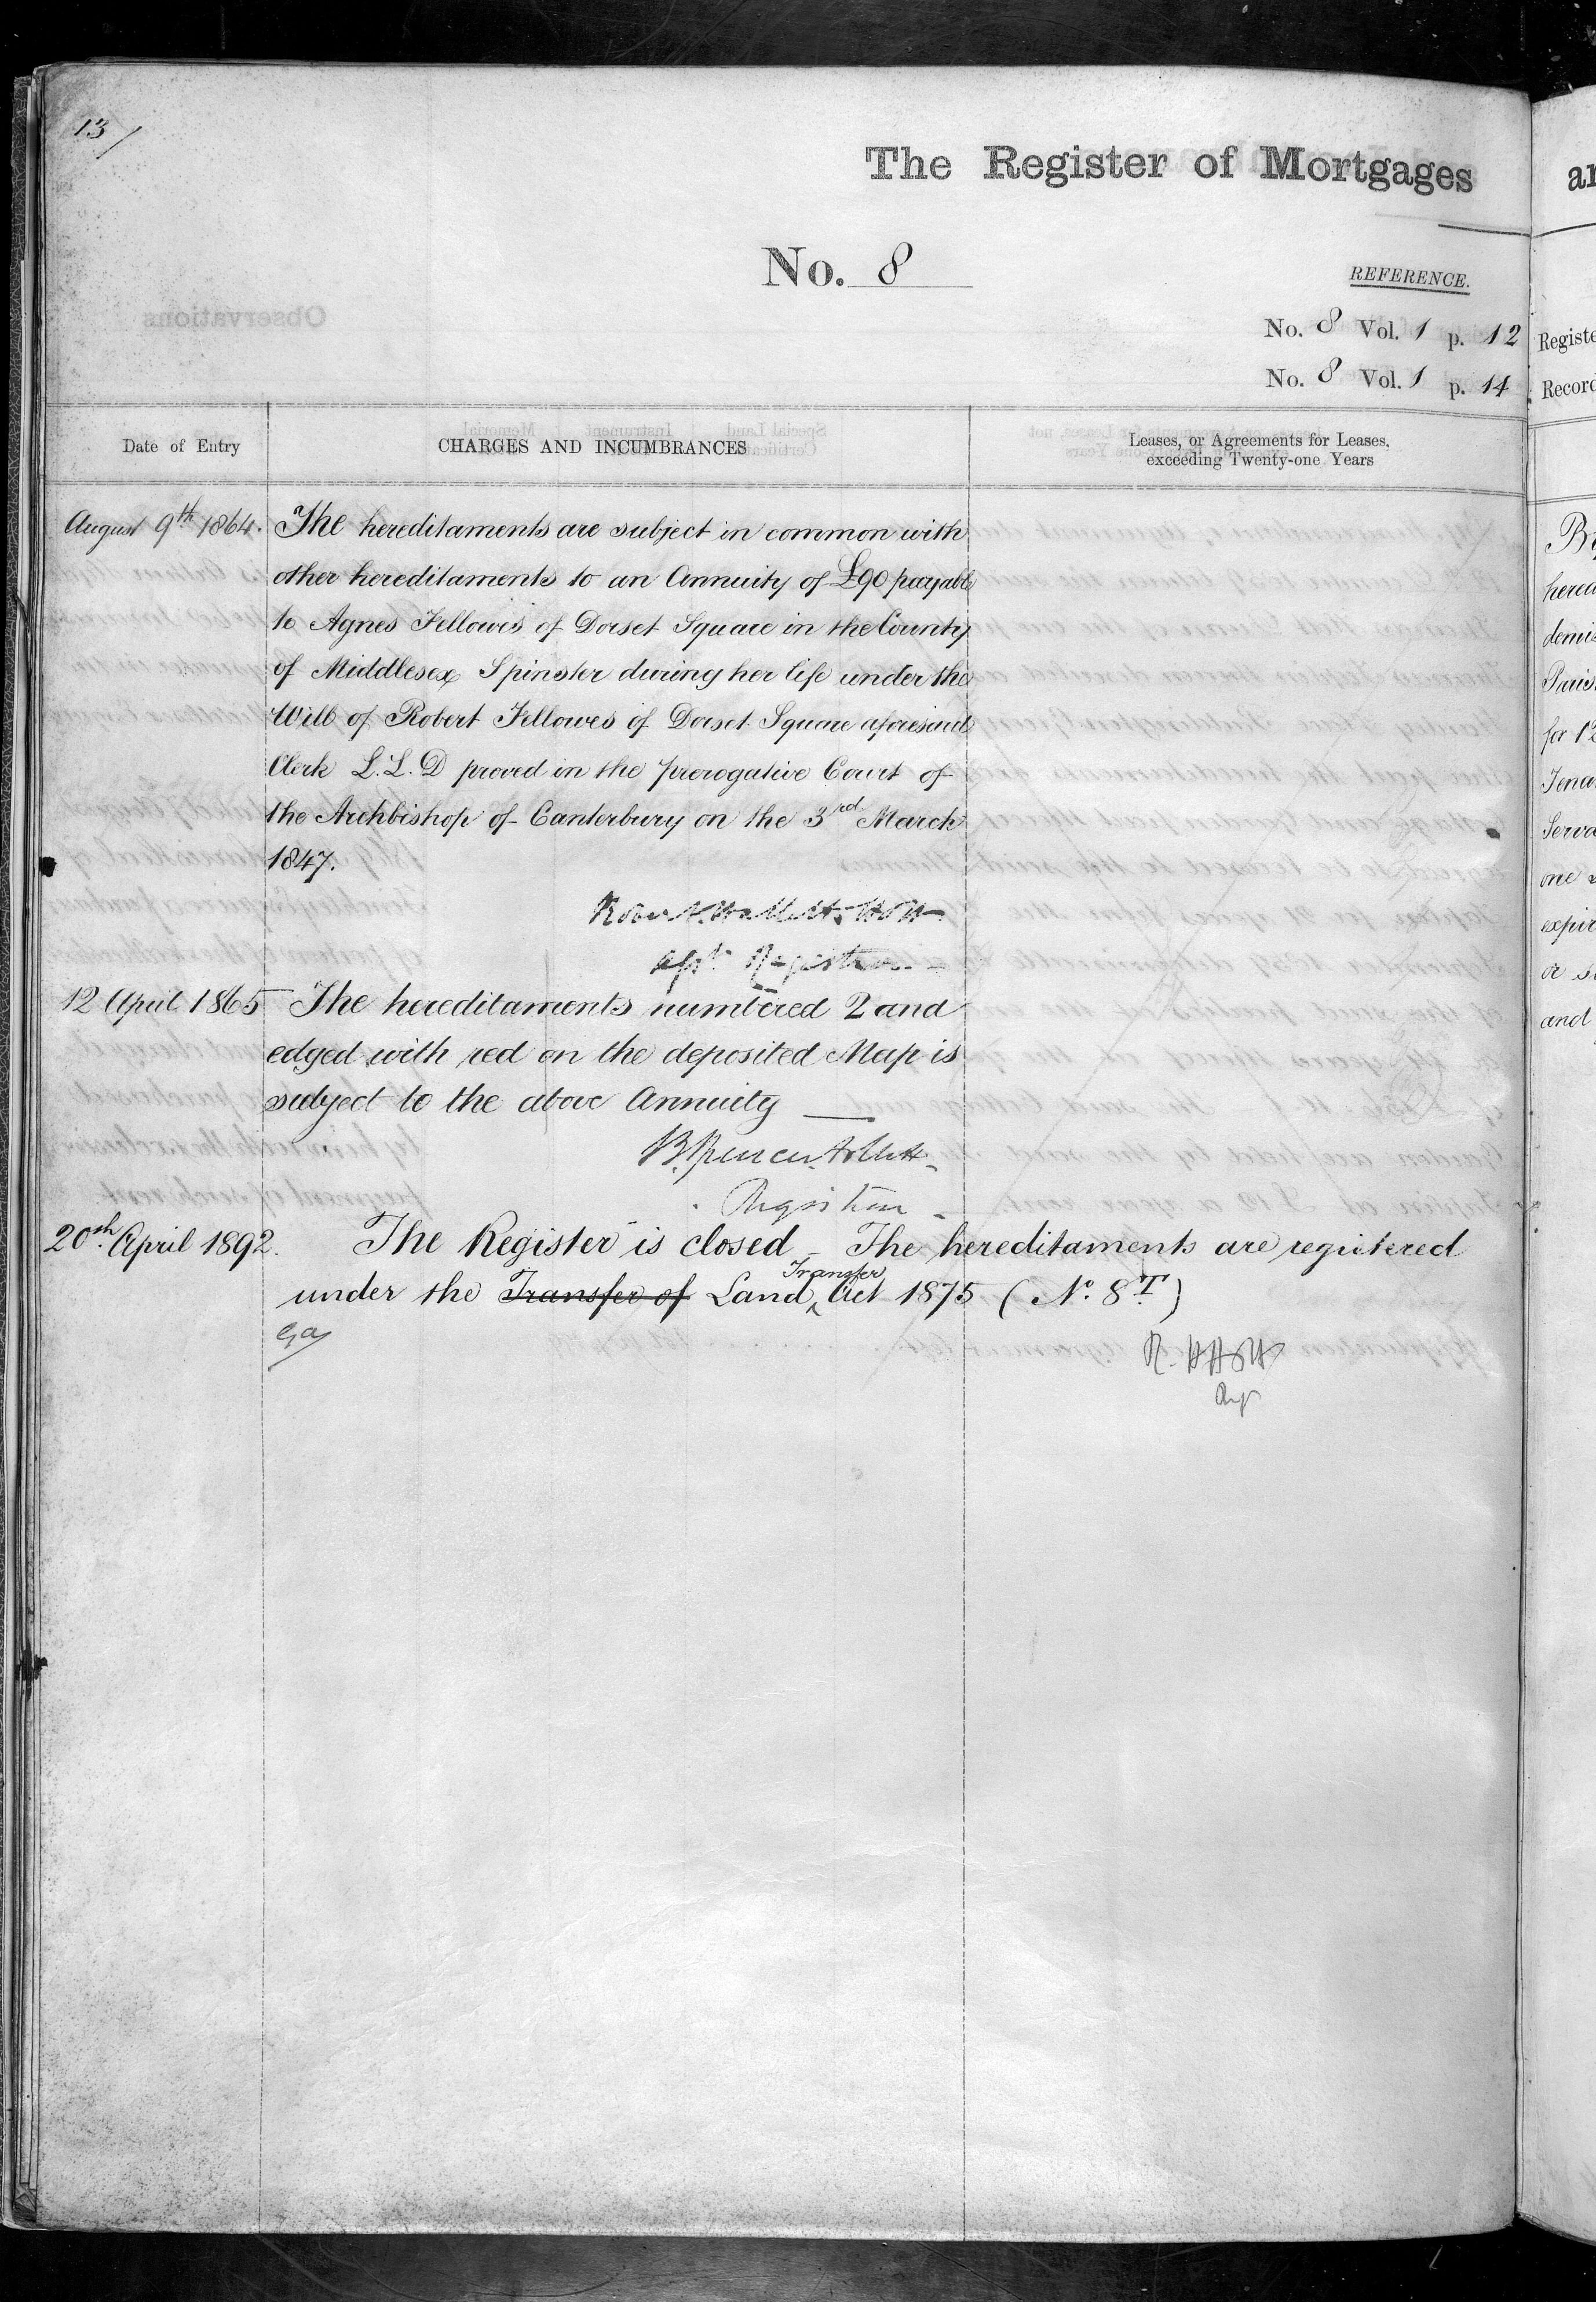 13/
The Register of Mortgages
No. 8
REFERENCE.
No. 8 Vol. 1 p. 12
No. 8 Vol. 1 p. 14
Date of Entry
CHARGES AND INCUMBRANCES
Leases, or Agreements for Leases,
exceeding Twenty-one Years
August 9th 1864. The hereditaments are subject in common with
other hereditaments to an Annuity of £90 payable
to Agnes Fellowes of Dorset Square in the County
of Middlesex Spinster during her life under the
Will of Robert Fellowes of Dorset Square aforesaid
Clerk L.L.D proved in the prerogative Court of
the Archbishop of Canterbury on the 3rd March
1847.
Registrar
12 April 1865 The hereditaments numbered 2 and
edged with red on the deposited Map is
subject to the above Annuity
Registrar
20th April 1892. The Register is closed - The hereditaments are registered
under the Transfer of Land Transfer Act 1875 (No. 8T)
Observations